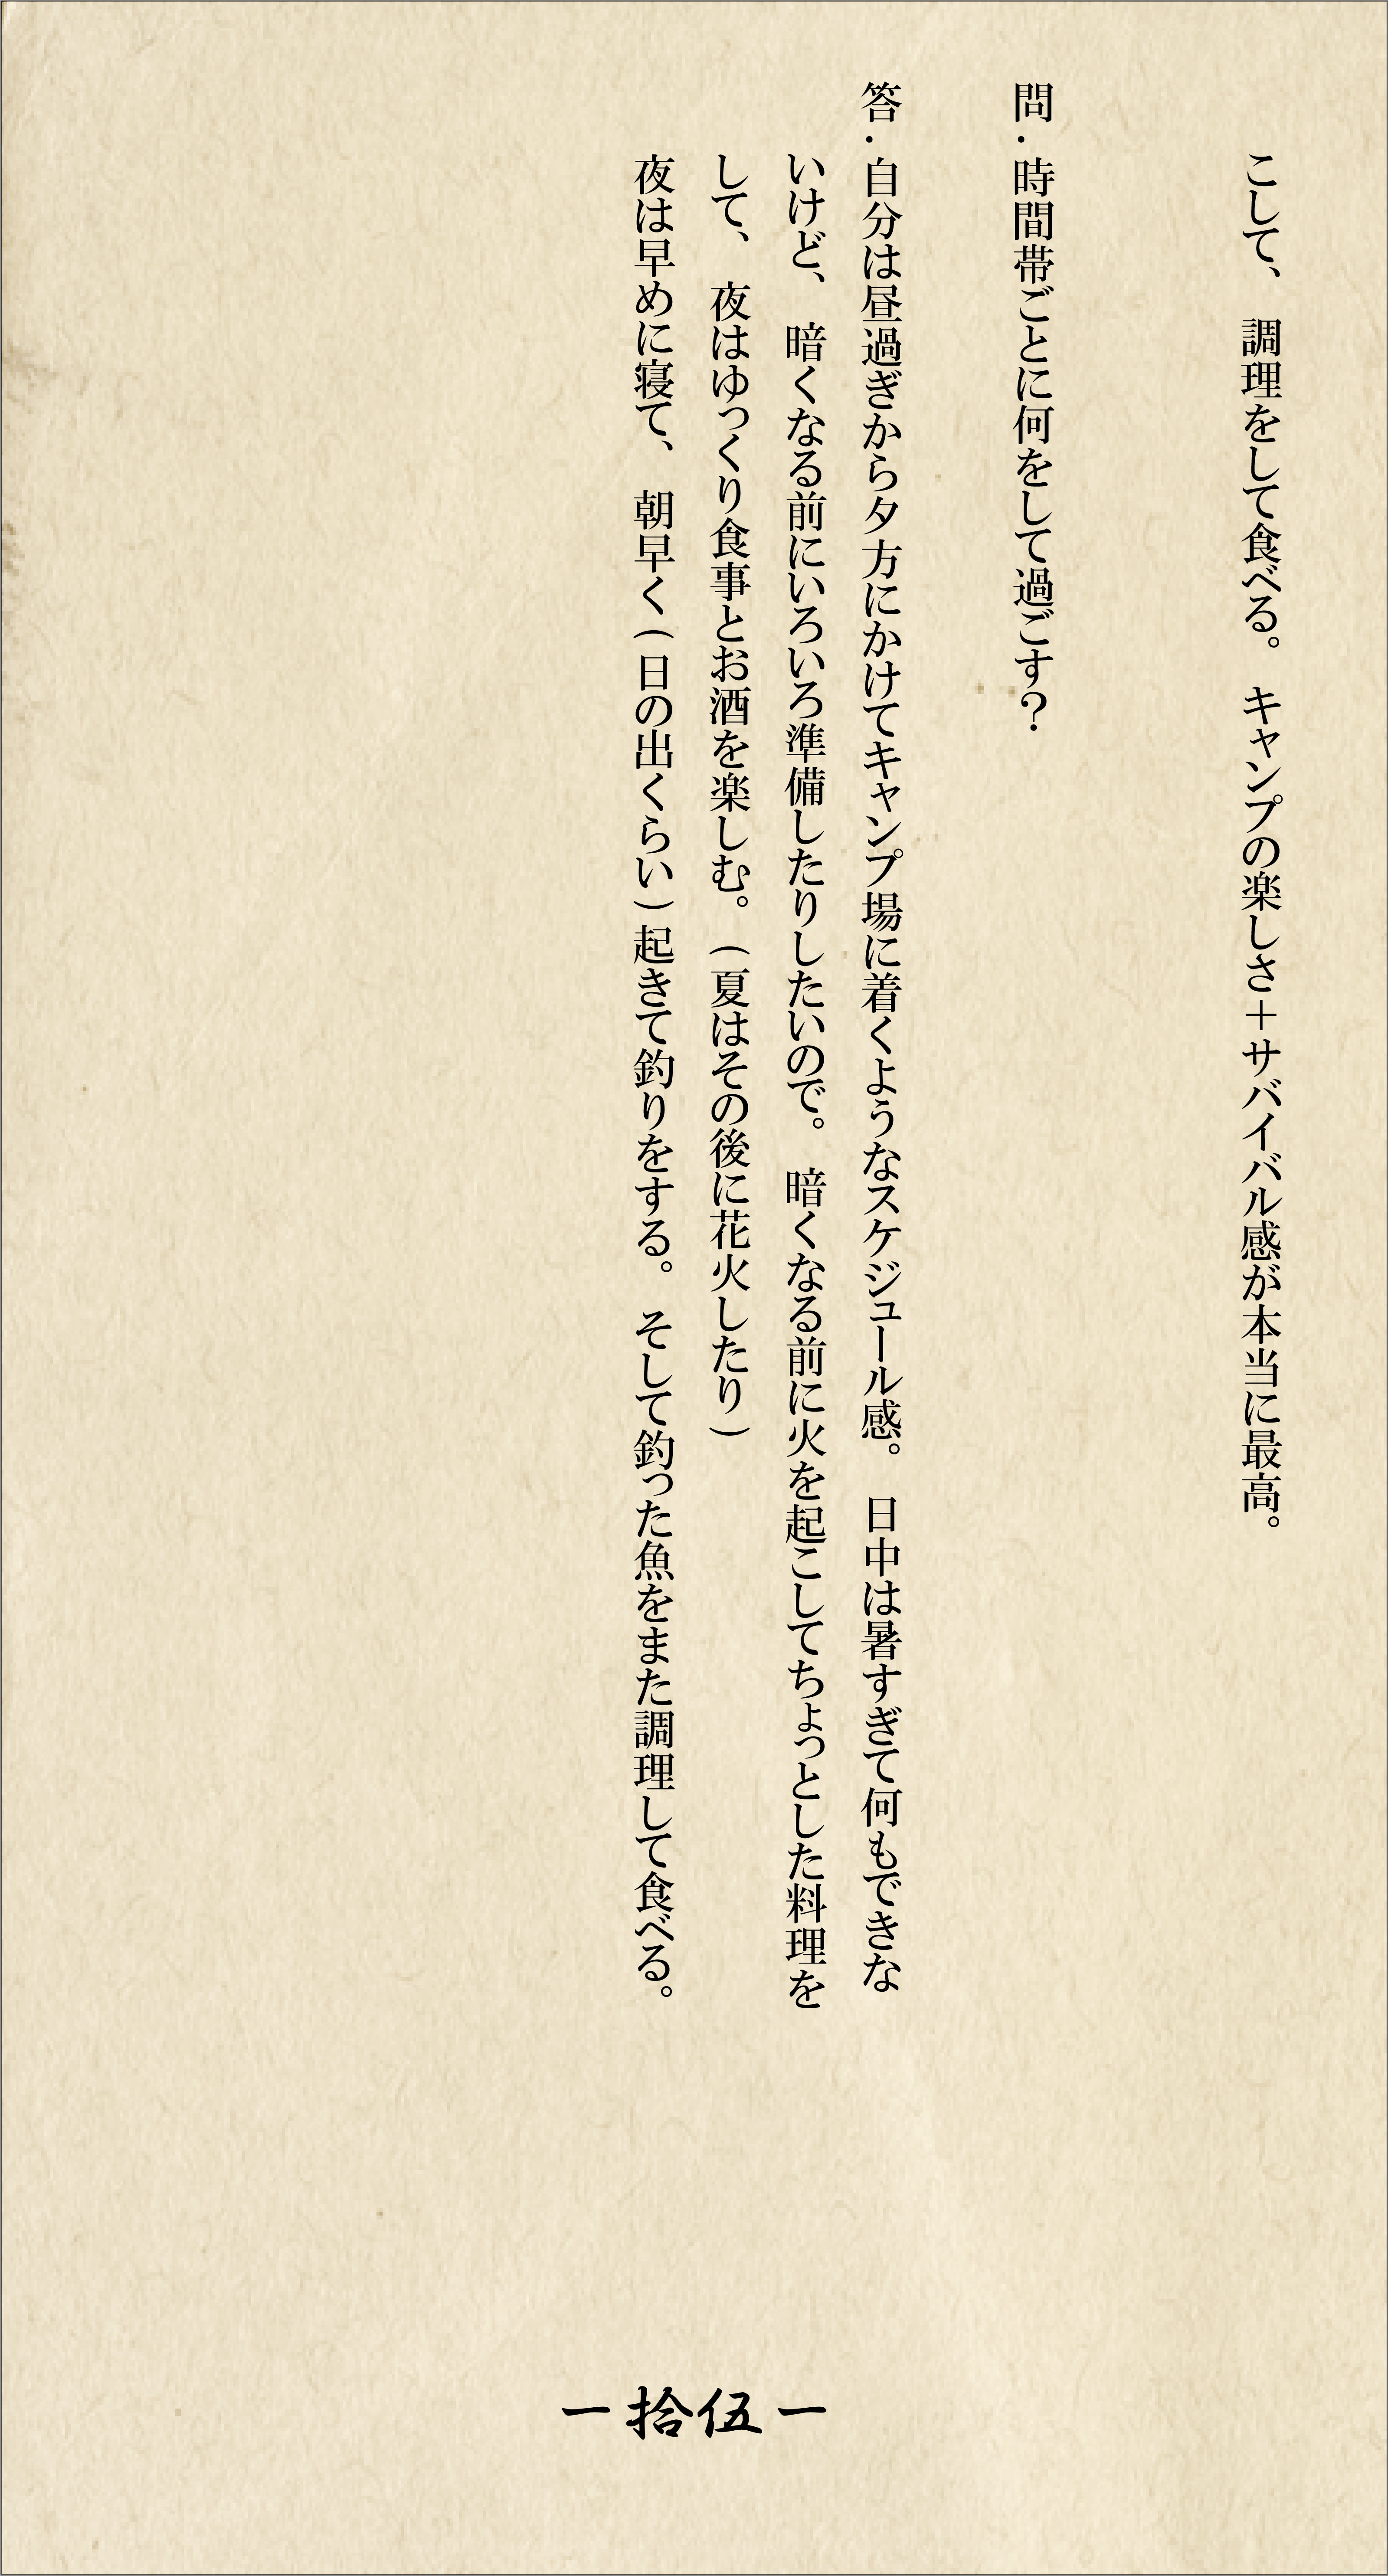 こして、調理をして食べる。キャンプの楽しさ＋サバイバル感が本当に最高。
問．時間帯ごとに何をして過ごす？
答．自分は昼過ぎから夕方にかけてキャンプ場に着くようなスケジュール感。日中は暑すぎて何もできな
いけど、暗くなる前にいろいろ準備したりしたいので。暗くなる前に火を起こしてちょっとした料理を
して、夜はゆっくり食事とお酒を楽しむ。（夏はその後に花火したり）
夜は早めに寝て、朝早く（日の出くらい）起きて釣りをする。そして釣った魚をまた調理して食べる。
ー拾伍ー